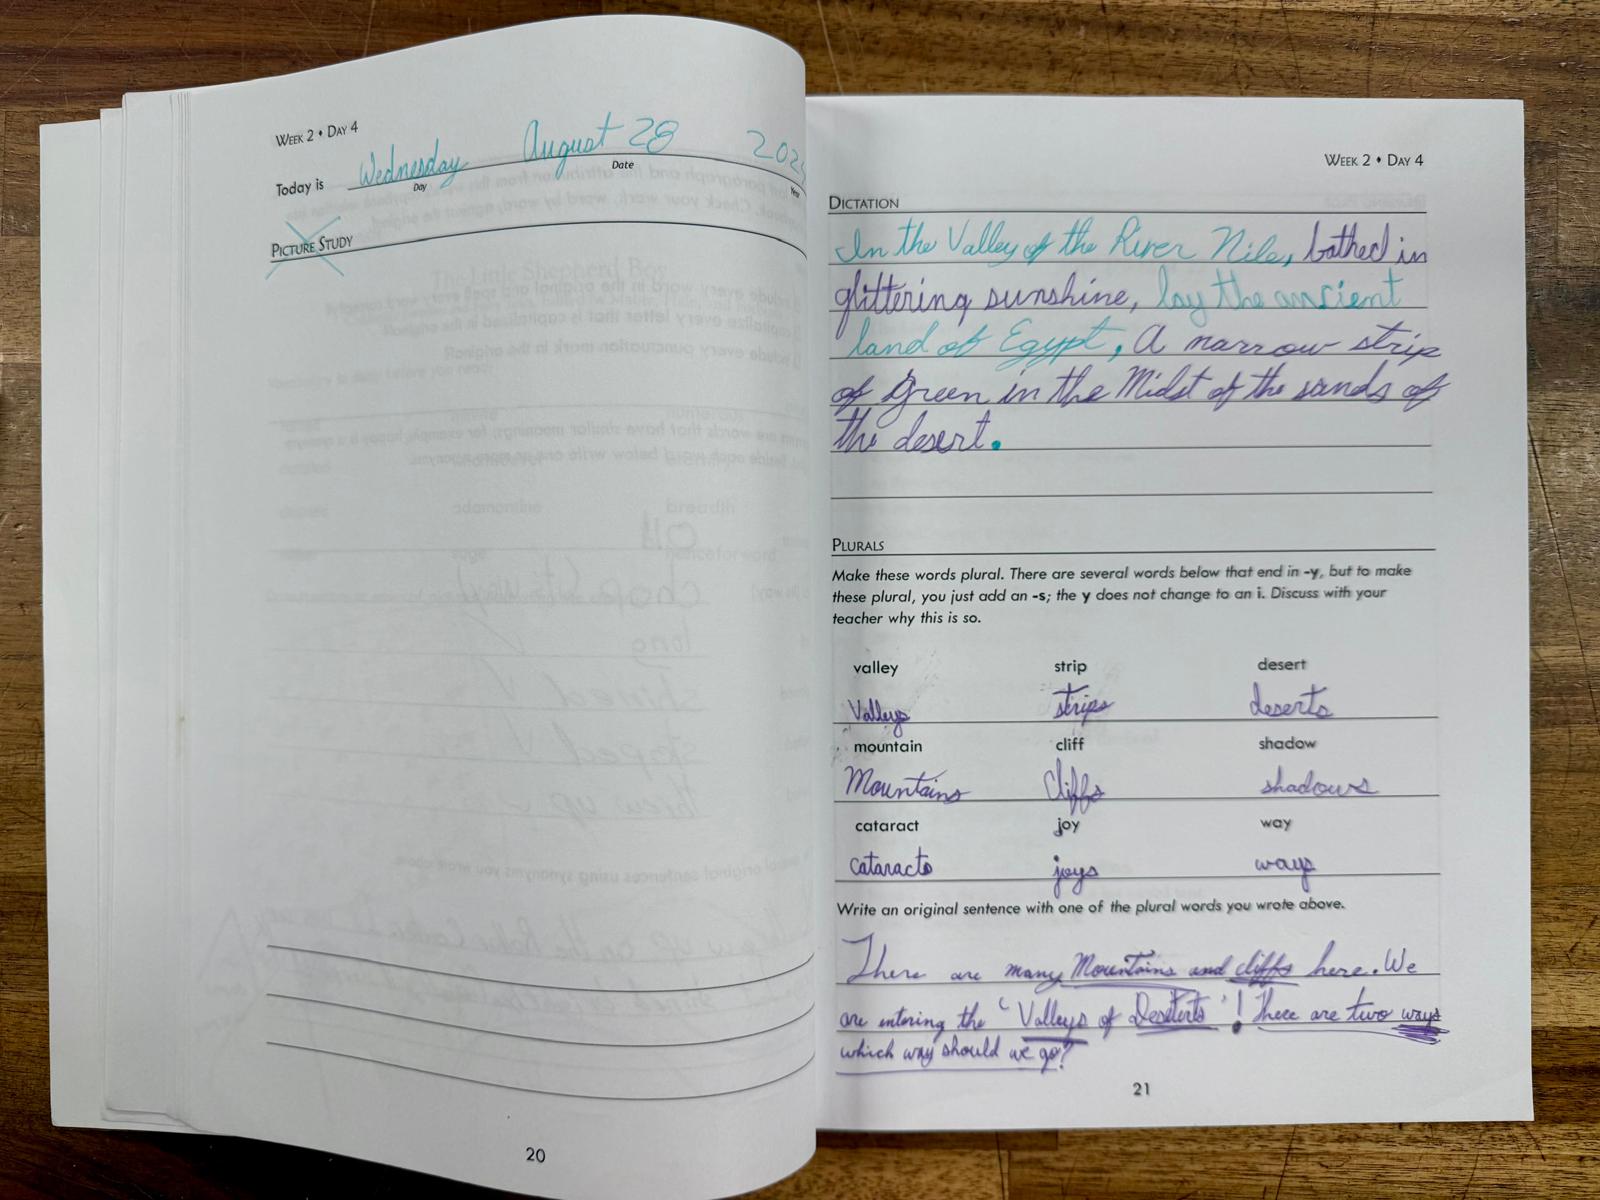 WEEK 2 • DAY 4
Today is Wednesday August 28
Day Date Year
PICTURE STUDY
20
WEEK 2 • DAY 4
DICTATION
In the Valley of the River Nile, bathed in
glittering sunshine, lay the ancient
land of Egypt, A narrow strip
of green in the Midst of the sands of
the desert.
PLURALS
Make these words plural. There are several words below that end in -y, but to make
these plural, you just add an -s; the y does not change to an i. Discuss with your
teacher why this is so.
valley strip desert
Valleys strips deserts
mountain cliff shadow
Mountains Cliffs shadows
cataract joy way
cataracts joys ways
Write an original sentence with one of the plural words you wrote above.
There are many Mountains and cliffs here. We
are entering the 'Valleys of Deserts'! There are two ways
which way should we go?
21